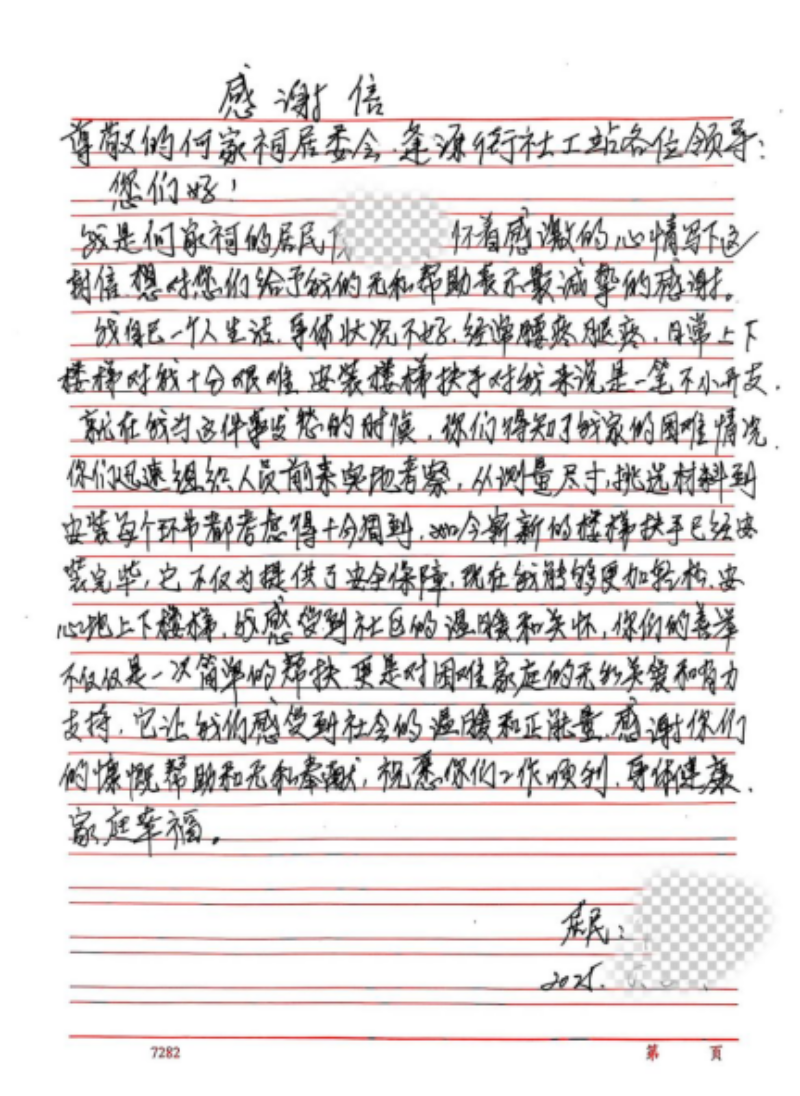 感谢信
尊敬的何家祠居委会、逢源街社工站各位领导:
您们好!
我是何家祠的居民 怀着感激的心情写下这
封信想对您们给予我的无私帮助表示最诚挚的感谢。
我自己一个人生活,身体状况不好,经常腰疼腿疼,日常上下
楼梯对我十分艰难,安装楼梯扶手对我来说是一笔不小开支,
就在我为这件事发愁的时候,你们得知了我家的困难情况,
你们迅速组织人员前来实地考察,从测量尺寸,挑选材料到
安装每个环节都考虑得十分周到,如今崭新的楼梯扶手已经安
装完毕,它不仅为提供了安全保障,现在我能够更加轻松、安
心地上下楼梯,我感受到社区的温暖和关怀,你们的善举
不仅仅是一次简单的帮扶,更是对困难家庭的无私关爱和有力
支持,它让我们感受到社会的温暖和正能量,感谢你们
的慷慨帮助和无私奉献,祝愿你们工作顺利,身体健康,
家庭幸福。
居民:
2025.
7282 第 页